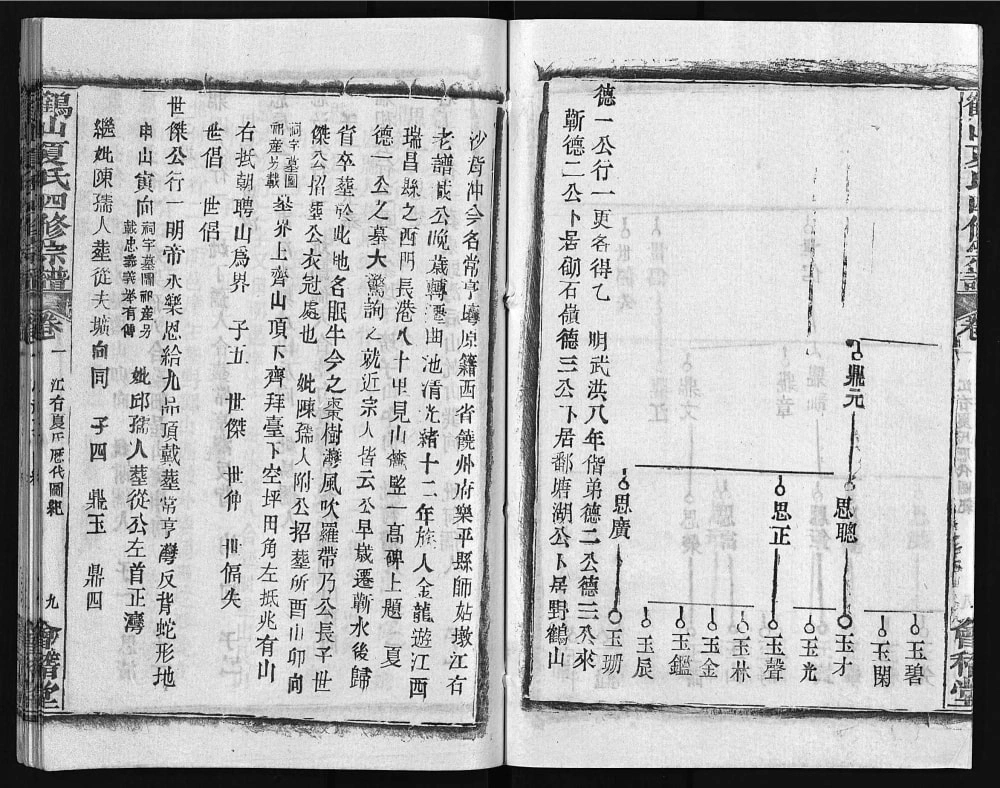 鼎元
思聰
思正
思廣
玉碧
玉閑
玉才
玉光
玉聲
玉林
玉金
玉鑑
玉辰
玉珊
德一公行一更名得乙 明武洪八年偕弟德二公德三公來
蘄德二公卜居砌石嶺德三公卜居鄱塘湖公卜居野鶴山
沙背冲今名常亨灣原籍西省饒州府樂平縣師姑墩江右
老譜載公晚歲轉遷曲池清光緒十二年族人金龍遊江西
瑞昌縣之西門長港八十里見山麓竪一高碑上題 夏
德一公之墓大驚詢之就近宗人皆云公早歲遷蘄水後歸
省卒葬於此地名眠牛今之棗樹灣風吹羅帶乃公長子世
傑公招葬公衣冠處也 妣陳孺人附公招葬所酉山卯向
祠宇墓圖
祀產另載
墓界上齊山頂下齊拜臺下空坪田角左抵兆有山
右抵朝聘山爲界 子五 世傑 世仲 世偪失
世倡 世侶
世傑公行一明帝永樂恩給九品頂戴葬常亨灣反背蛇形地
申山寅向
祠宇墓圖祀產另
載忠義義舉有傳
妣邱孺人葬從公左首正灣
繼妣陳孺人葬從夫壙向同 子四 鼎玉 鼎四
鶴山夏氏四修宗譜
卷一
江右夏氏歷代圖紀
九